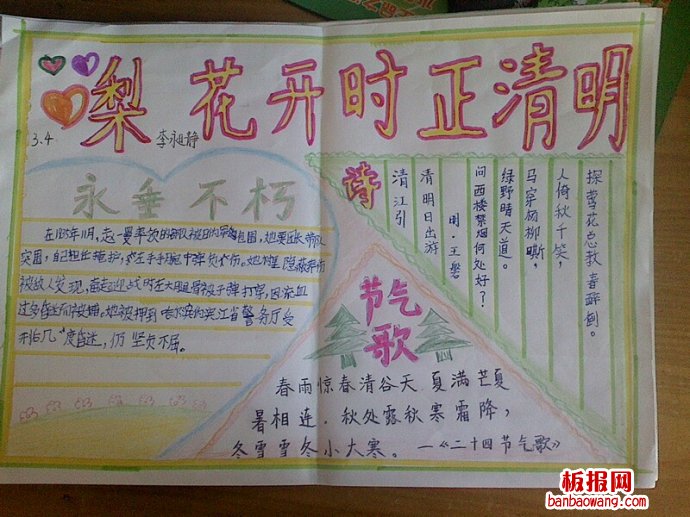 梨花开时正清明
3.4 李昶静
永垂不朽
在1935年11月,赵一曼率领的部队被日伪军包围,她要团长带队
突围,自己担任掩护,在左手手腕中弹负伤。她在隐蔽养伤
被敌人发现,在迎战内左大腿骨被子弹打穿,因流血
过多昏迷而被捕。她被押到哈尔滨的滨江省警务厅受
刑后几度昏迷,仍坚贞不屈。
诗
清江引
清明日出游
明·王磐
问西楼禁烟何处好?
绿野晴天道。
马穿杨柳嘶,
人倚秋千笑,
探莺花总教春醉倒。
节气
歌
春雨惊春清谷天 夏满芒夏
暑相连。秋处露秋寒霜降,
冬雪雪冬小大寒。—《二十四节气歌》
板报网
banbaowang.com